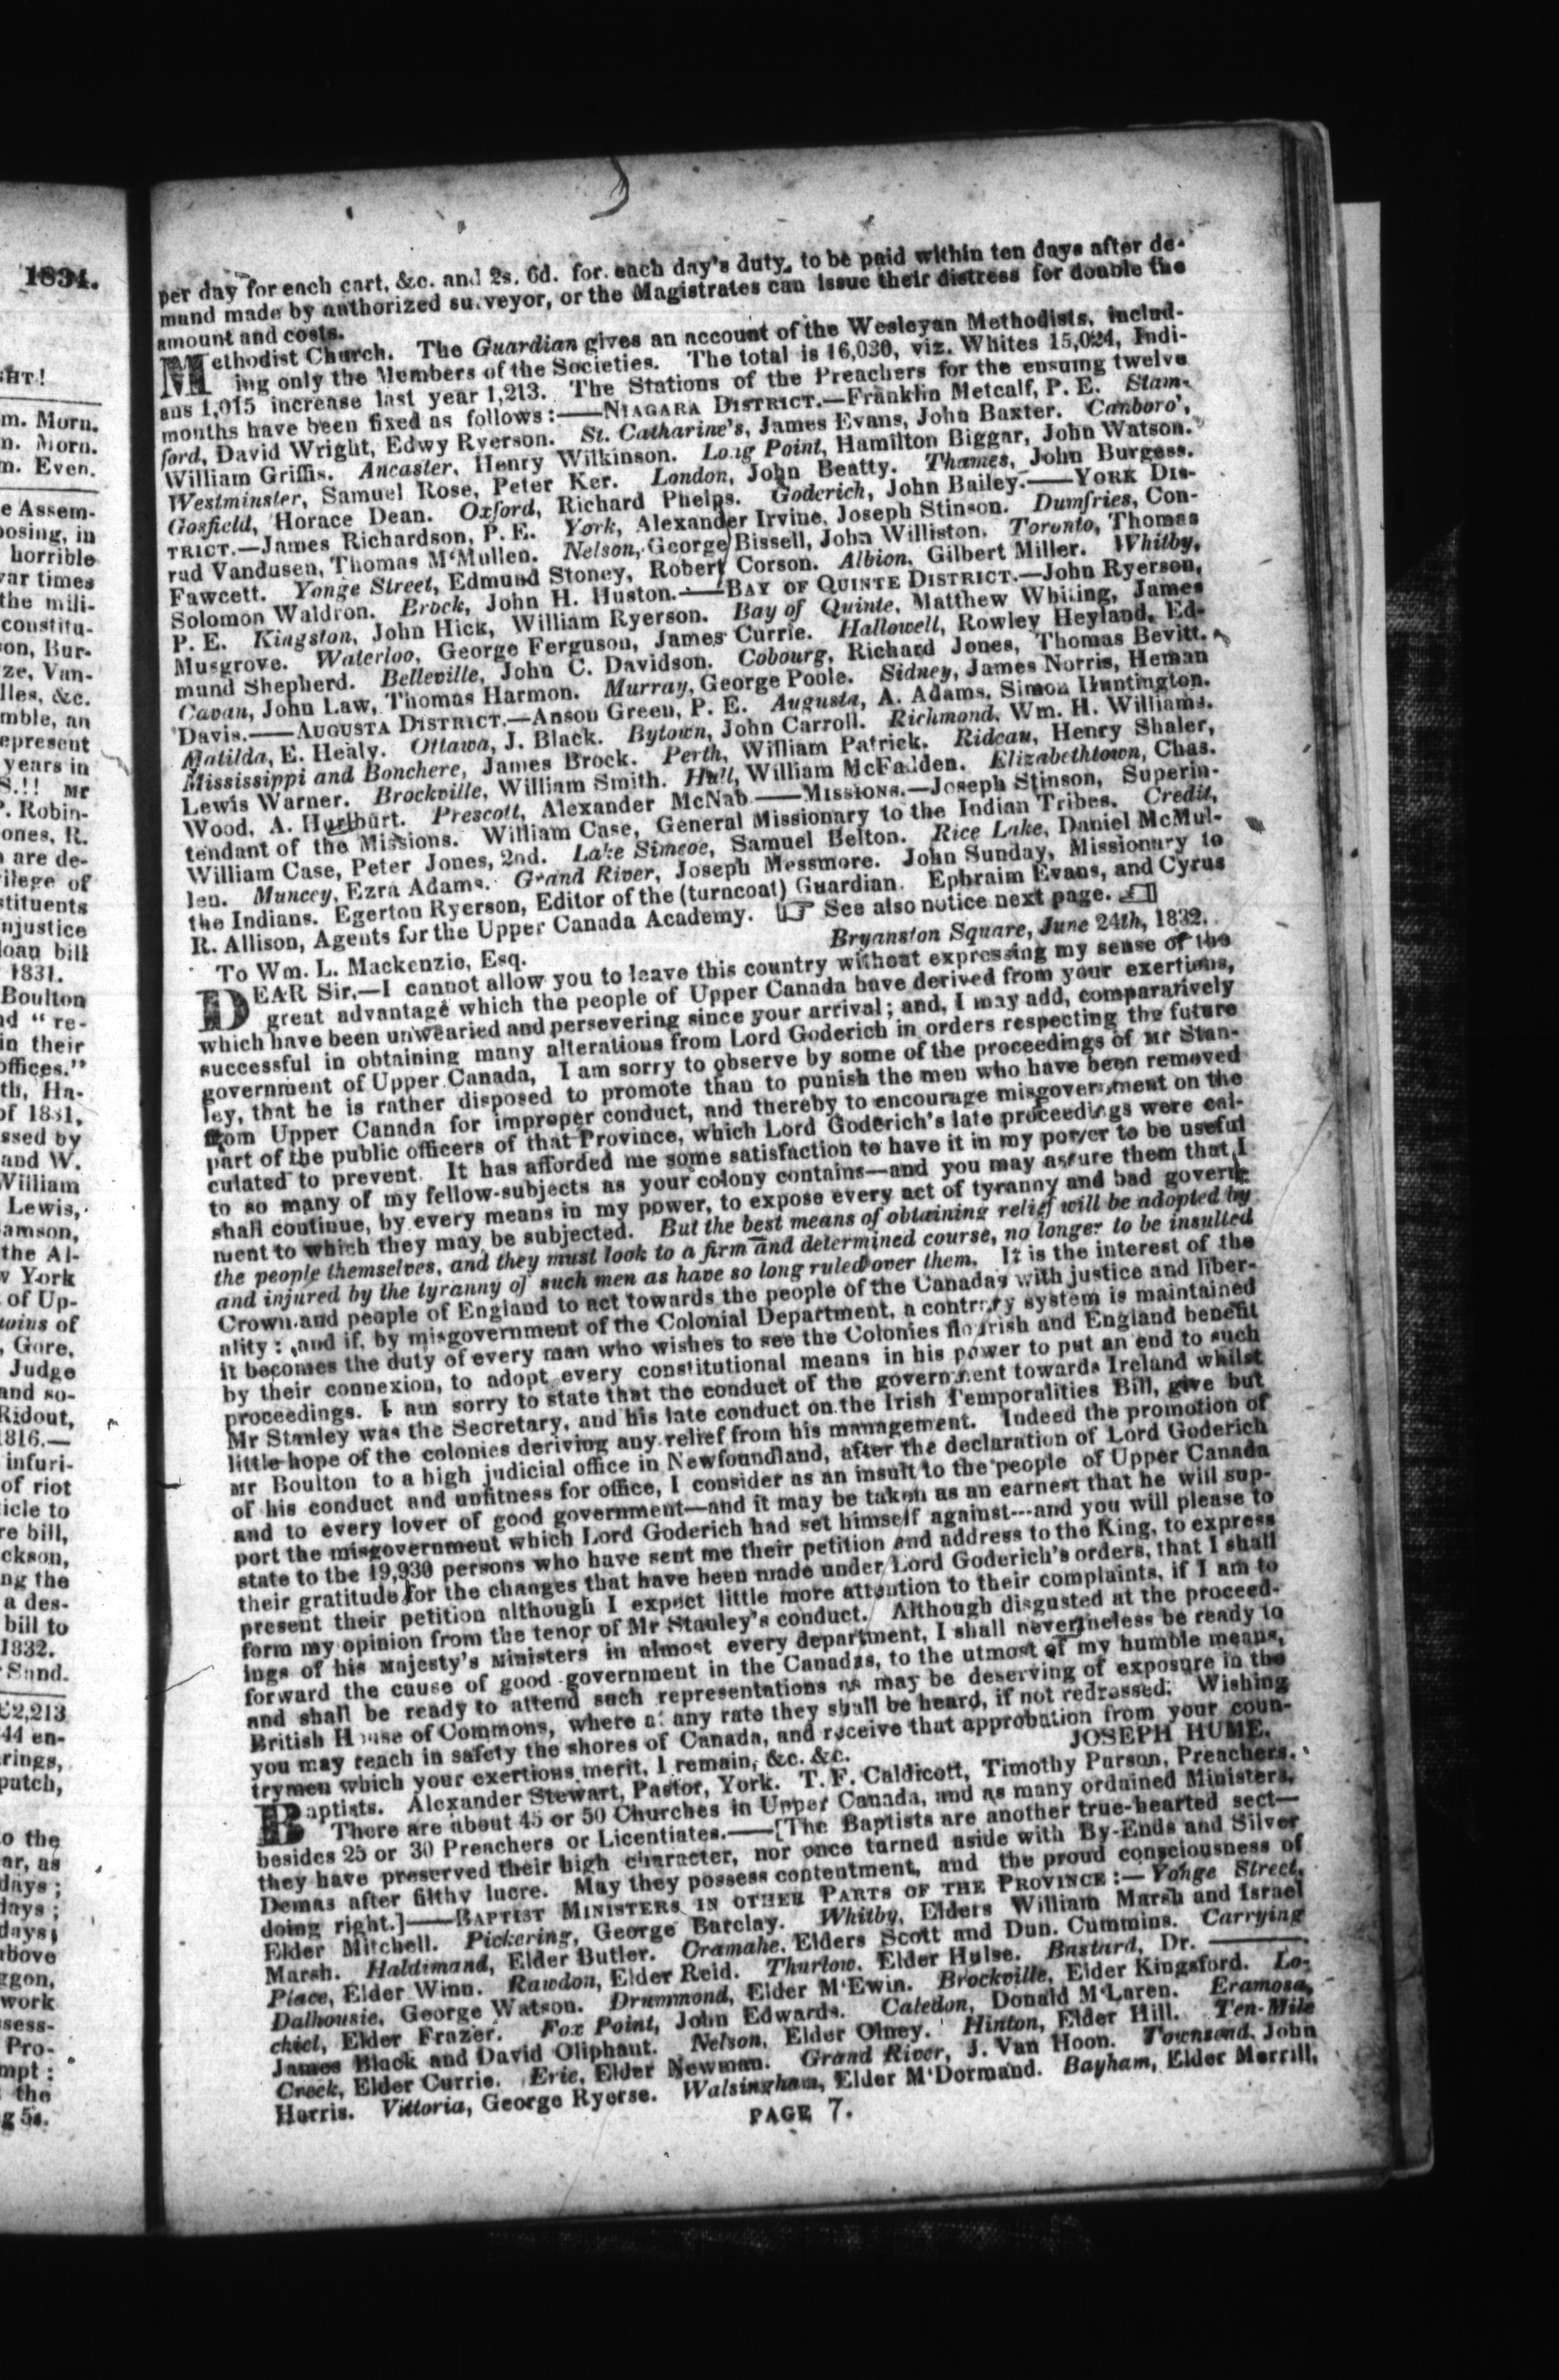 1834.
GHT!
m. Morn.
n. Morn.
m. Even.
e Assem-
posing, in
horrible
var times
the mili-
constitu-
on, Bur-
ze, Van-
lles, &c.
mble, an
epresent
years in
S.!! Mr
P. Robin-
ones, R.
are de-
ilege of
stituents
njustice
loan bill
1831.
Boulton
nd "re-
in their
offices."
th, Ha-
of 1831,
ssed by
and W.
William
Lewis,
amson,
the Al-
w York
of Up-
wins of
, Gore,
Judge
and so-
Ridout,
1816.—
infuri-
of riot
icle to
re bill,
ckson,
ng the
a des-
bill to
1832.
Sund.
£2,213
44 en-
rings,
patch,
o the
ar, as
days;
days;
days;
above
ggon,
work
ssess-
Pro-
mpt:
the
g 5s.
per day for each cart, &c. and 2s. 6d. for each day's duty, to be paid within ten days after de-
mand made by authorized surveyor, or the Magistrates can issue their distress for double the
amount and costs.
Methodist Church. The Guardian gives an account of the Wesleyan Methodists, includ-
ing only the Members of the Societies. The total is 16,030, viz. Whites 15,024, Indi-
ans 1,015 increase last year 1,213. The Stations of the Preachers for the ensuing twelve
months have been fixed as follows:——NIAGARA DISTRICT.—Franklin Metcalf, P. E. Stam-
ford, David Wright, Edwy Ryerson. St. Catharine's, James Evans, John Baxter. Canboro',
William Griffis. Ancaster, Henry Wilkinson. Long Point, Hamilton Biggar, John Watson.
Westminster, Samuel Rose, Peter Ker. London, John Beatty. Thames, John Burgess.
Gosfield, Horace Dean. Oxford, Richard Phelps. Goderich, John Bailey.——YORK DIS-
TRICT.—James Richardson, P. E. York, Alexander Irvine, Joseph Stinson. Dumfries, Con-
rad Vandusen, Thomas M'Mullen. Nelson, George Bissell, John Williston. Toronto, Thomas
Fawcett. Yonge Street, Edmund Stoney, Robert Corson. Albion, Gilbert Miller. Whitby,
Solomon Waldron. Brock, John H. Huston.——BAY OF QUINTE DISTRICT.—John Ryerson,
P. E. Kingston, John Hick, William Ryerson. Bay of Quinte, Matthew Whiting, James
Musgrove. Waterloo, George Ferguson, James Currie. Hallowell, Rowley Heyland, Ed-
mund Shepherd. Belleville, John C. Davidson. Cobourg, Richard Jones, Thomas Bevitt.
Cavan, John Law, Thomas Harmon. Murray, George Poole. Sidney, James Norris, Heman
Davis.——AUGUSTA DISTRICT.—Anson Green, P. E. Augusta, A. Adams, Simon Huntington.
Matilda, E. Healy. Ottawa, J. Black. Bytown, John Carroll. Richmond, Wm. H. Williams.
Mississippi and Bonchere, James Brock. Perth, William Patrick. Rideau, Henry Shaler,
Lewis Warner. Brockville, William Smith. Hull, William McFadden. Elizabethtown, Chas.
Wood, A. Hurlburt. Prescott, Alexander McNab.——MISSIONS.—Joseph Stinson, Superin-
tendant of the Missions. William Case, General Missionary to the Indian Tribes. Credit,
William Case, Peter Jones, 2nd. Lake Simcoe, Samuel Belton. Rice Lake, Daniel McMul-
len. Muncey, Ezra Adams. Grand River, Joseph Messmore. John Sunday, Missionary to
the Indians. Egerton Ryerson, Editor of the (turncoat) Guardian. Ephraim Evans, and Cyrus
R. Allison, Agents for the Upper Canada Academy. ☞ See also notice next page. ☜
Bryanston Square, June 24th, 1832.
To Wm. L. Mackenzie, Esq.
DEAR Sir,—I cannot allow you to leave this country without expressing my sense of the
great advantage which the people of Upper Canada have derived from your exertions,
which have been unwearied and persevering since your arrival; and, I may add, comparatively
successful in obtaining many alterations from Lord Goderich in orders respecting the future
government of Upper Canada, I am sorry to observe by some of the proceedings of Mr Stan-
ley, that he is rather disposed to promote than to punish the men who have been removed
from Upper Canada for improper conduct, and thereby to encourage misgovernment on the
part of the public officers of that Province, which Lord Goderich's late proceedings were cal-
culated to prevent. It has afforded me some satisfaction to have it in my power to be useful
to so many of my fellow-subjects as your colony contains—and you may assure them that I
shall continue, by every means in my power, to expose every act of tyranny and bad govern-
ment to which they may be subjected. But the best means of obtaining relief will be adopted by
the people themselves, and they must look to a firm and determined course, no longer to be insulted
and injured by the tyranny of such men as have so long ruled over them. It is the interest of the
Crown and people of England to act towards the people of the Canadas with justice and liber-
ality: and if, by misgovernment of the Colonial Department, a contrary system is maintained
it becomes the duty of every man who wishes to see the Colonies flourish and England benefit
by their connexion, to adopt every constitutional means in his power to put an end to such
proceedings. I am sorry to state that the conduct of the government towards Ireland whilst
Mr Stanley was the Secretary, and his late conduct on the Irish Temporalities Bill, give but
little hope of the colonies deriving any relief from his management. Indeed the promotion of
Mr Boulton to a high judicial office in Newfoundland, after the declaration of Lord Goderich
of his conduct and unfitness for office, I consider as an insult to the people of Upper Canada
and to every lover of good government—and it may be taken as an earnest that he will sup-
port the misgovernment which Lord Goderich had set himself against---and you will please to
state to the 19,930 persons who have sent me their petition and address to the King, to express
their gratitude for the changes that have been made under Lord Goderich's orders, that I shall
present their petition although I expect little more attention to their complaints, if I am to
form my opinion from the tenor of Mr Stanley's conduct. Although disgusted at the proceed-
ings of his Majesty's Ministers in almost every department, I shall nevertheless be ready to
forward the cause of good government in the Canadas, to the utmost of my humble means,
and shall be ready to attend such representations as may be deserving of exposure in the
British House of Commons, where at any rate they shall be heard, if not redressed. Wishing
you may reach in safety the shores of Canada, and receive that approbation from your coun-
trymen which your exertions merit, I remain, &c. &c.
JOSEPH HUME.
Baptists. Alexander Stewart, Pastor, York. T. F. Caldicott, Timothy Parson, Preachers.
There are about 45 or 50 Churches in Upper Canada, and as many ordained Ministers,
besides 25 or 30 Preachers or Licentiates.——[The Baptists are another true-hearted sect—
they have preserved their high character, nor once turned aside with By-Ends and Silver
Demas after filthy lucre. May they possess contentment, and the proud consciousness of
doing right.]——BAPTIST MINISTERS IN OTHER PARTS OF THE PROVINCE:—Yonge Street,
Elder Mitchell. Pickering, George Barclay. Whitby, Elders William Marsh and Israel
Marsh. Haldimand, Elder Butler. Cramahe, Elders Scott and Dun. Cummins. Carrying
Place, Elder Winn. Rawdon, Elder Reid. Thurlow, Elder Hulse. Bastard, Dr. ———.
Dalhousie, George Watson. Drummond, Elder M'Ewin. Brockville, Elder Kingsford. Lo-
chiel, Elder Frazer. Fox Point, John Edwards. Caledon, Donald M'Laren. Eramosa,
James Black and David Oliphant. Nelson, Elder Olney. Hinton, Elder Hill. Ten-Mile
Creek, Elder Currie. Erie, Elder Newman. Grand River, J. Van Hoon. Townsend, John
Harris. Vittoria, George Ryerse. Walsingham, Elder M'Dormand. Bayham, Elder Merrill,
PAGE 7.